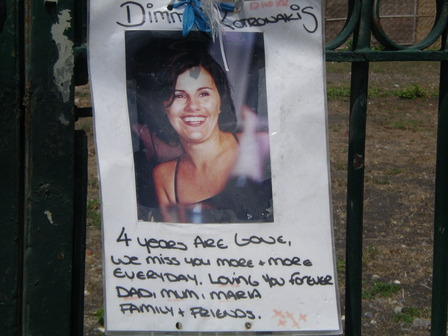 Dimm Kotronakis
4 years ARE GONE,
WE MISS YOU MORE + MORE
EVERYDAY. LOVING YOU FOREVER
DAD, MUM, MARIA
FAMILY + FRIENDS. xxx